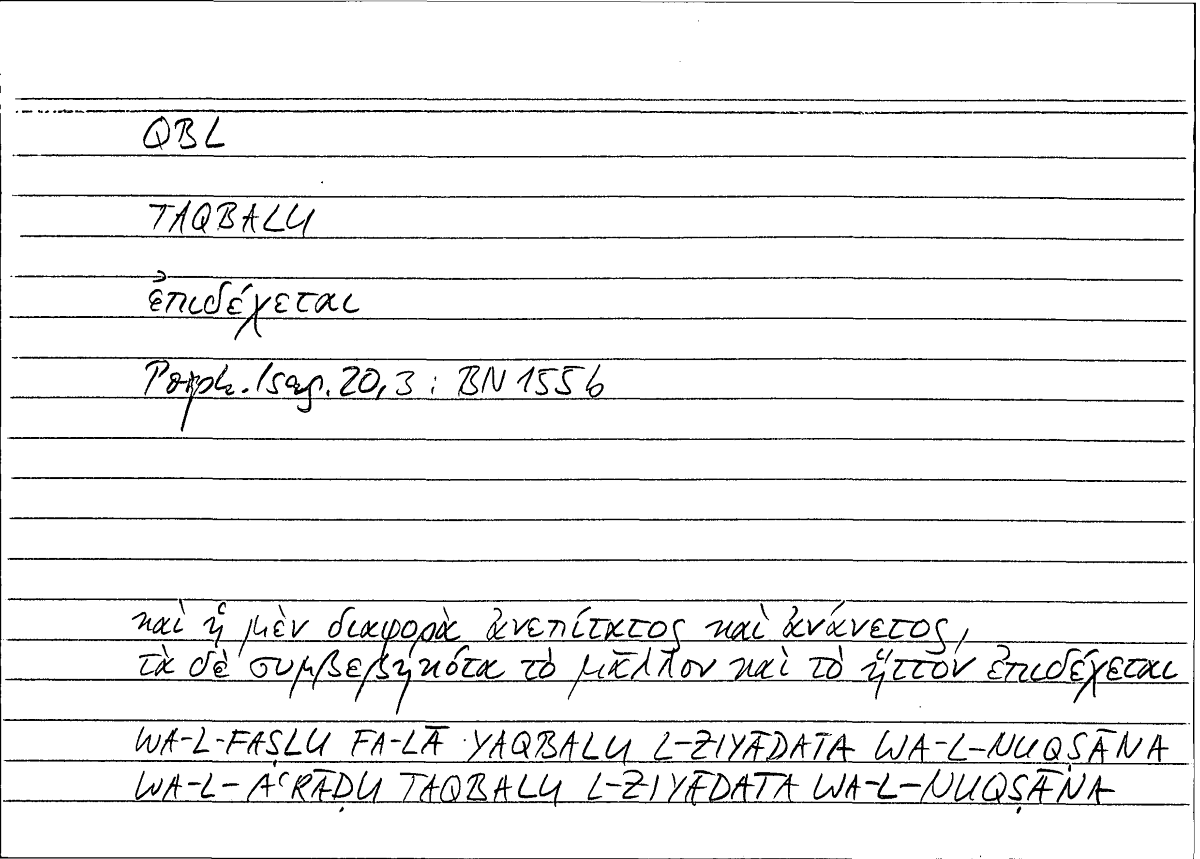 QBL
TAQBALU
ἐπιδέχεται
Porph. Isag. 20, 3 : BN 155b
καὶ ἡ μὲν διαφορὰ ἀνεπίτατος καὶ ἀνάνετος,
τὰ δὲ συμβεβηκότα τὸ μᾶλλον καὶ τὸ ἧττον ἐπιδέχεται
WA-L-FAṢLU FA-LĀ YAQBALU L-ZIYĀDATA WA-L-NUQṢĀNA
WA-L-AʿRĀḌU TAQBALU L-ZIYĀDATA WA-L-NUQṢĀNA